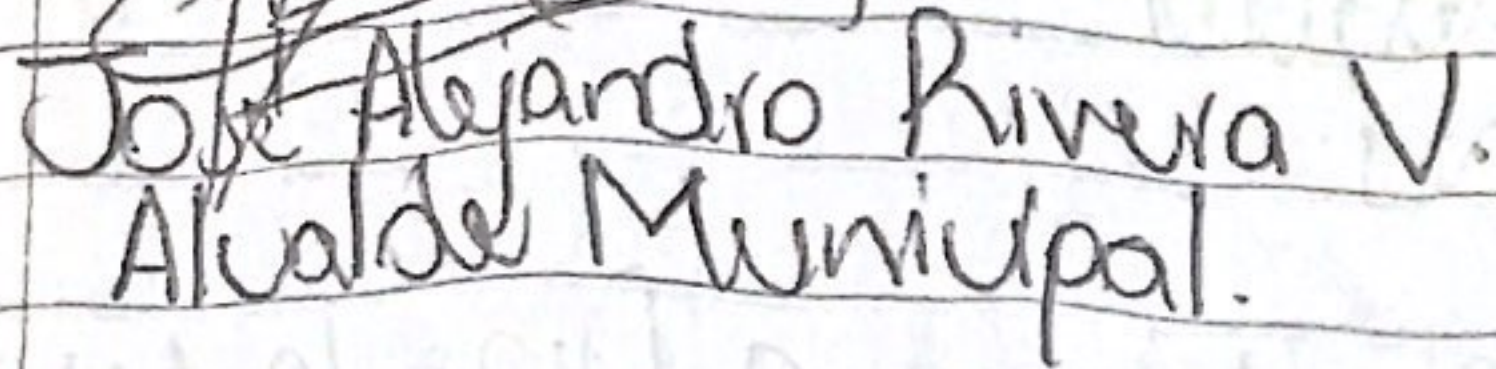 José Alejandro Rivera V.
Alcalde Municipal.